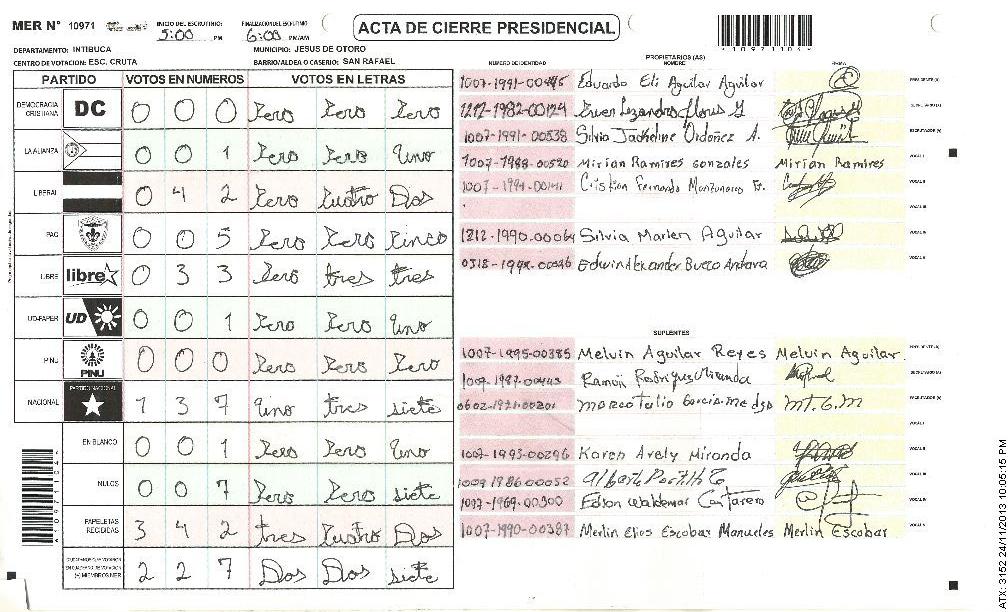 MER N° 10971
INICIO DEL ESCRUTINIO: 5:00 PM
FINALIZACION DEL ESCRUTINIO 6:00 PM/AM
ACTA DE CIERRE PRESIDENCIAL
10971104
DEPARTAMENTO: INTIBUCA
MUNICIPIO: JESUS DE OTORO
CENTRO DE VOTACION: ESC. CRUTA
BARRIO/ALDEA O CASERIO: SAN RAFAEL
PARTIDO VOTOS EN NUMEROS VOTOS EN LETRAS
DEMOCRACIA CRISTIANA DC 0 0 0 Zero Zero Zero
LA ALIANZA 0 0 1 Zero Zero Uno
LIBERAL 0 4 2 Zero Cuatro Dos
PAC 0 0 5 Zero Zero Cinco
LIBRE libre 0 3 3 Zero tres tres
UD-FAPER UD 0 0 1 Zero Zero Uno
PINU PINU 0 0 0 Zero Zero Zero
NACIONAL PARTIDO NACIONAL 1 3 7 Uno tres siete
EN BLANCO 0 0 1 Zero Zero Uno
NULOS 0 0 7 Zero Zero siete
PAPELETAS RECIBIDAS 3 4 2 tres Cuatro Dos
(+) MIEMBROS MER 2 2 7 Dos Dos siete
PROPIETARIOS (AS)
NUMERO DE IDENTIDAD NOMBRE FIRMA
Eduardo Eli Aguilar Aguilar PRESIDENTE (A)
1212-1982-00124 SECRETARIO (A)
1007-1991-00538 Silvia Jackeline Ordoñez A. ESCRUTADOR (A)
1007-1988-00520 Mirian Ramires Gonzales Mirian Ramires VOCAL I
Cristian Fernando VOCAL II
VOCAL III
1212-1990-00064 Silvia Marlen Aguilar VOCAL IV
Edwin Alexander VOCAL V
SUPLENTES
1007-1995-00385 Melvin Aguilar Reyes Melvin Aguilar PRESIDENTE (A)
Ramón Rodriguez Miranda SECRETARIO (A)
0602-1971-00201 Marco Tulio Garcia M.T.G.M ESCRUTADOR (A)
VOCAL I
1007-1993-00296 Karen Arely Miranda VOCAL II
1009 1986-00052 Alberto VOCAL III
1007-1969-00300 Edson Waldemar Cantarero VOCAL IV
1007-1990-00387 Merlin Elios Escobar Manueles Merlin Escobar VOCAL V
ATX: 3152 24/11/2013 10:05:15 PM